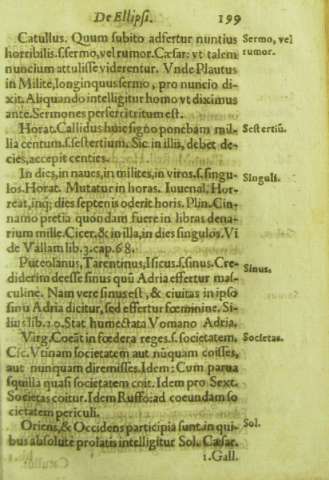 De Ellipsi. 199
Catullus. Quum subito adfertur nuntius
horribilis. s. sermo, vel rumor. Cæsar: vt talem
nuncium attulisse viderentur. Vnde Plautus
in Milite, longinquus sermo, pro nuncio di-
xit. Aliquando intelligitur homo vt diximus
ante. Sermones perferri tritum est.
Sermo, vel
rumor.
Horat. Callidus huic signo ponebam mil-
lia centum. s. sestertium. Sic in illis, debet de-
cies, accepit centies.
Sestertiũ.
In dies, in naues, in milites, in viros. s. singu-
los. Horat. Mutatur in horas. Iuuenal. Hor-
reat, inq; dies septenis oderit horis. Plin. Cin-
namo pretia quondam fuere in libras dena-
rium mille. Cicer. & in illa, in dies singulos. Vi
de Vallam lib. 3. cap. 68.
Singuli.
Puteolanus, Tarentinus, Isicus. s. sinus. Cre-
diderim deesse sinus quũ Adria effertur mas-
culine. Nam vere sinus est, & ciuitas in ipso
sinu Adria dicitur, sed effertur fœminine. Si-
lius lib. 10. Stat humectata Vomano Adria.
Sinus.
Virg. Coeãt in fœdera reges. s. societatem.
Cic. Vtinam societatem aut nũquam coisses,
aut nunquam diremisses. Idem: Cum parua
squilla quasi societatem coit. Idem pro Sext.
Societas coitur. Idem Ruffo: ad coeundam so
cietatem periculi.
Societas.
Oriens, & Occidens participia sunt: in qui-
bus absolute prolatis intelligitur Sol. Cæsar.
Sol.
1. Gall.